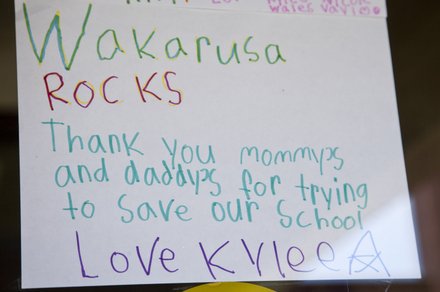 Wakarusa
ROCKS
Thank you mommys
and daddys for trying
to save our School
Love KYLee